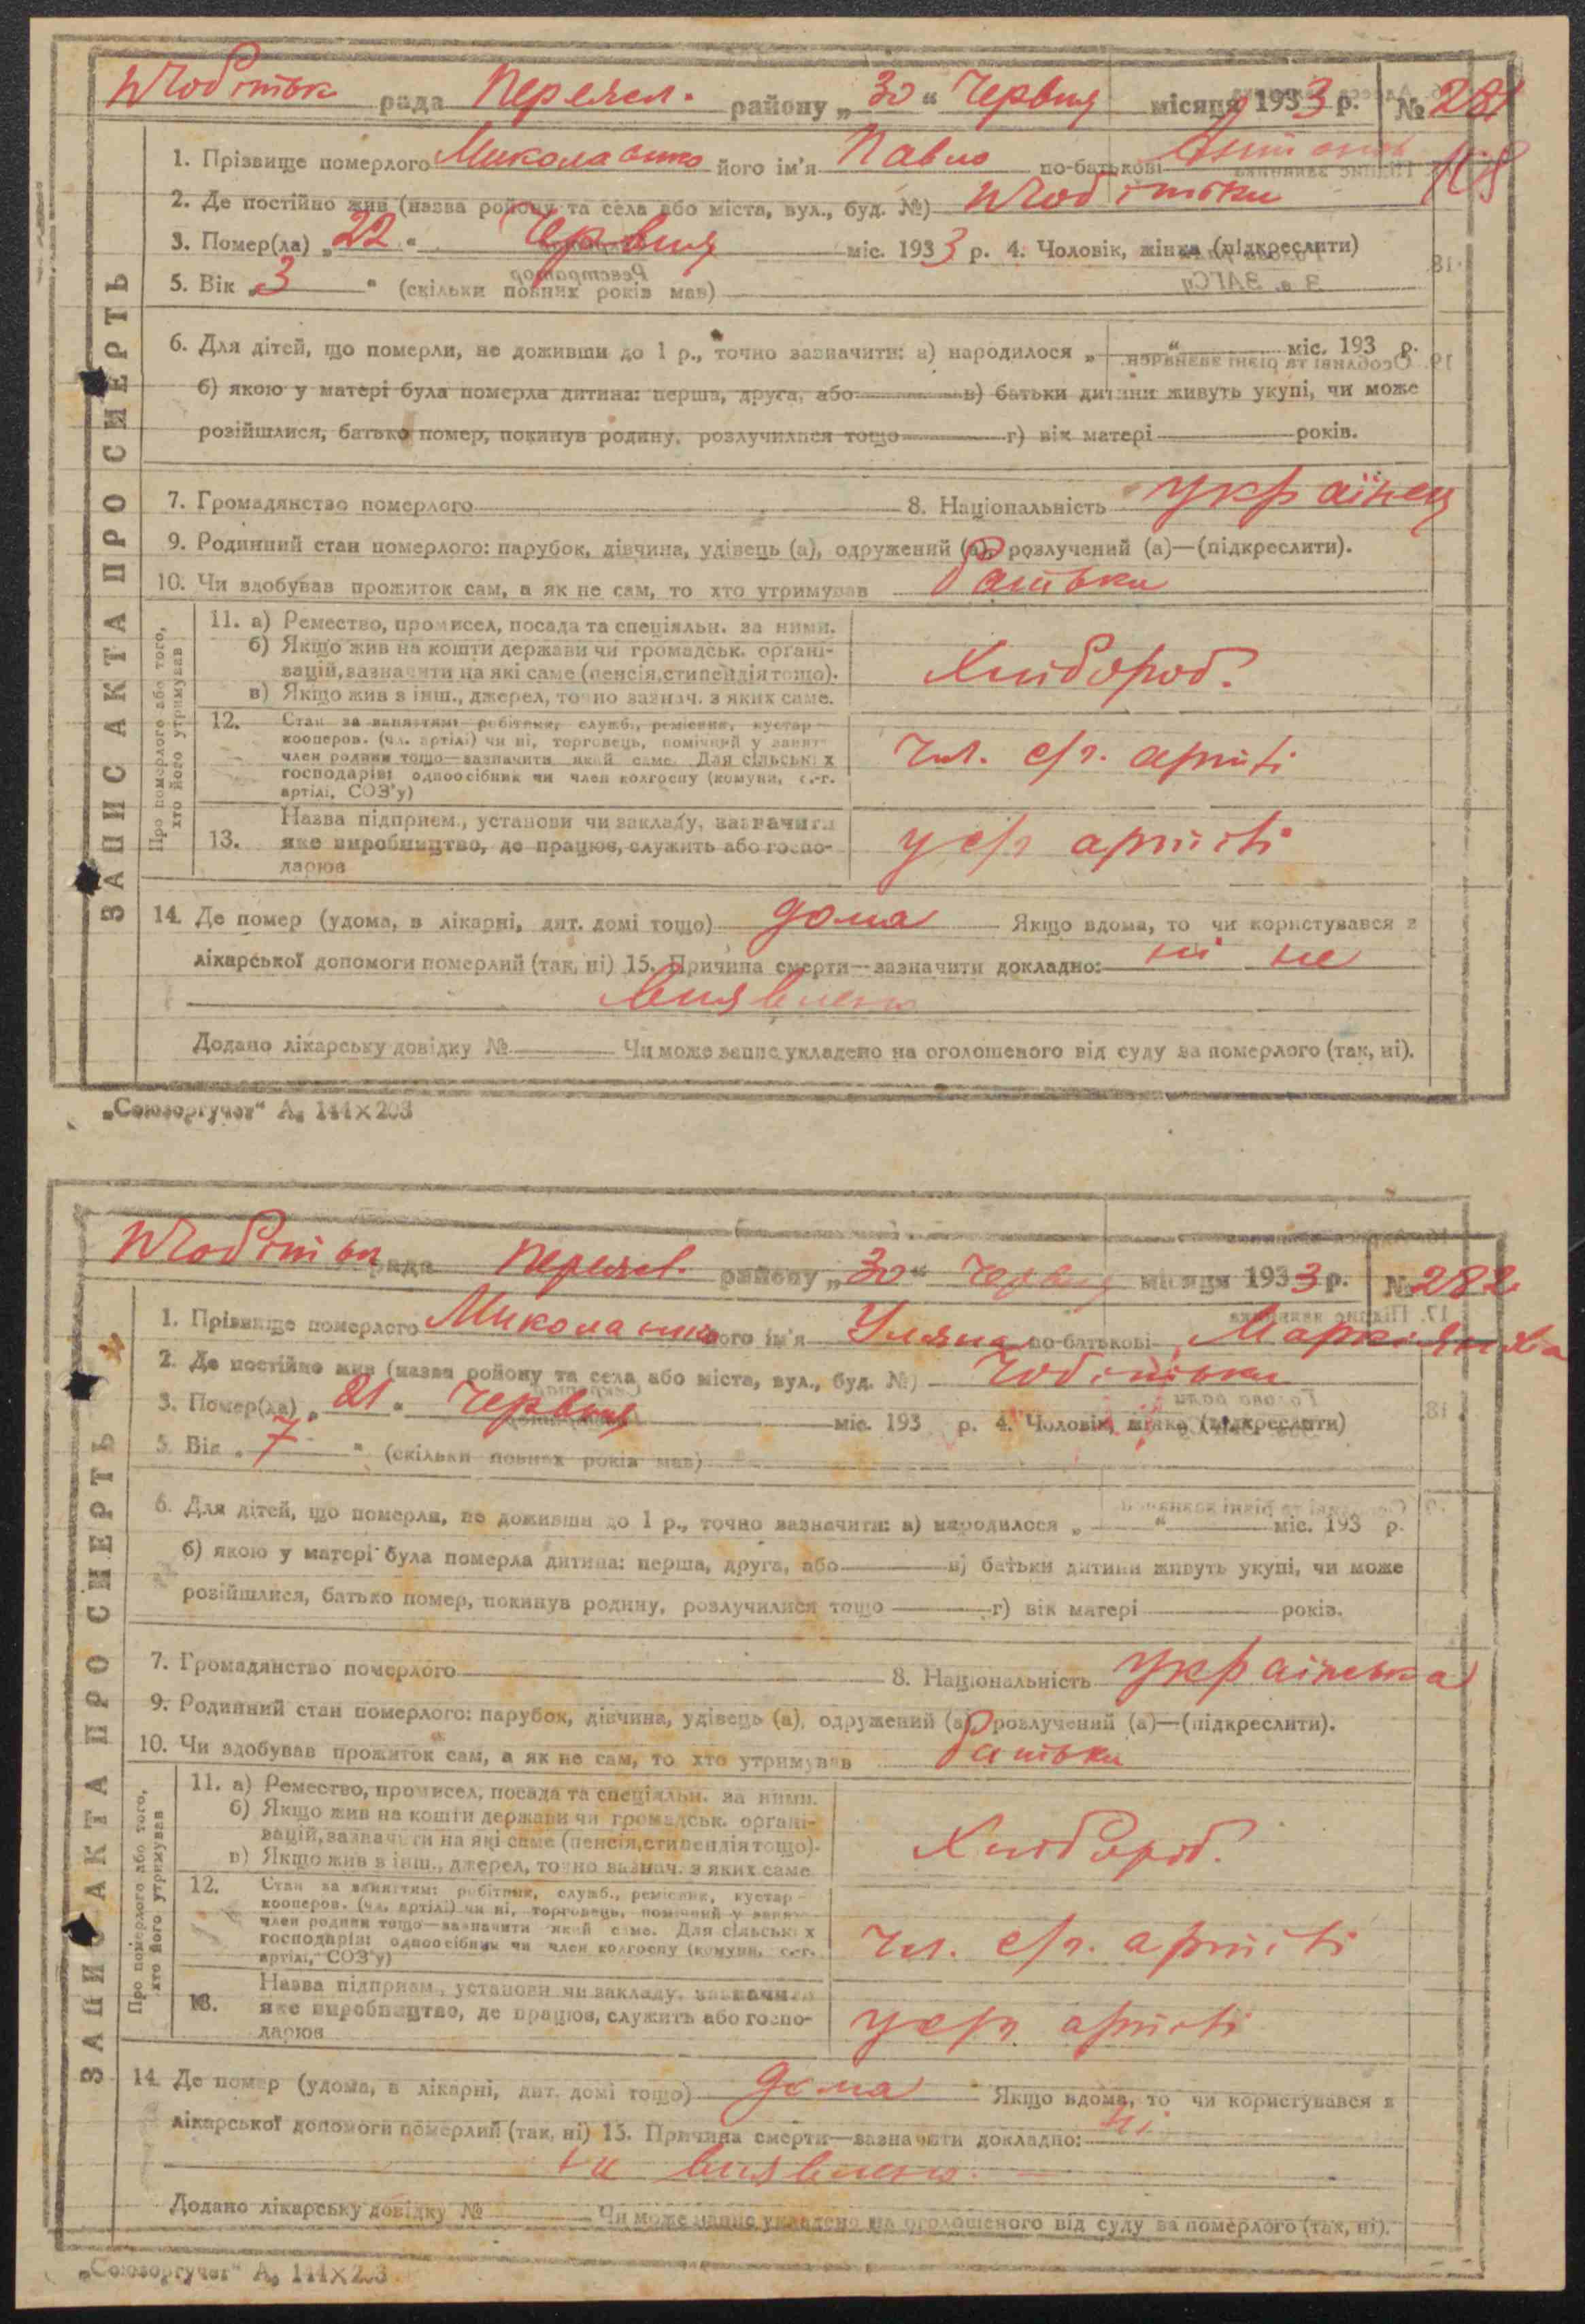 рада Переясл. району „30“ Червня місяця 1933 р. № 281
1. Прізвище померлого Миколаєнко його ім'я Павло по-батькові
108
2. Де постійно жив (назва району та села або міста, вул., буд. №)
3. Помер(ла) „22“ Червня міс. 1933 р. 4. Чоловік, жінка (підкреслити)
5. Вік „3“ (скільки повних років мав)
6. Для дітей, що померли, не доживши до 1 р., точно зазначити: а) народилося „ “ міс. 193 р.
б) якою у матері була померла дитина: перша, друга, або в) батьки дитини живуть укупі, чи може
розійшлися, батько помер, покинув родину, розлучилися тощо г) вік матері років.
7. Громадянство померлого 8. Національність українец
9. Родинний стан померлого: парубок, дівчина, удівець (а), одружений (а), розлучений (а)—(підкреслити).
10. Чи здобував прожиток сам, а як не сам, то хто утримував батьки
ЗАПИС АКТА ПРО СМЕРТЬ
Про померлого або того,
хто його утримував
11. а) Ремество, промисел, посада та спеціяльн. за ними.
б) Якщо жив на кошти держави чи громадськ. органі-
зацій, зазначити на які саме (пенсія, стипендія тощо).
в) Якщо жив з інш., джерел, точно зазнач. з яких саме.
Хлібороб.
12. Стан за заняттям: робітник, служб., ремісник, кустар
кооперов. (чл. артілі) чи ні, торговець, помічний у занят
член родини тощо—зазначити який саме. Для сільських
господарів: одноосібник чи член колгоспу (комуни, с.-г.
артілі, СОЗ'у)
Чл. с/г. артілі
13. Назва підприєм., установи чи закладу, зазначити
яке виробництво, де працює, служить або госпо-
дарює
у с/г артілі
14. Де помер (удома, в лікарні, дит. домі тощо) дома Якщо вдома, то чи користувався з
лікарської допомоги померлий (так, ні) 15. Причина смерти—зазначити докладно: ні не
виявлено
Додано лікарську довідку № Чи може запис укладено на оголошеного від суду за померлого (так, ні).
„Союзоргучет“ А₆ 144×203
рада Переясл. району „30“ Червня місяця 1933 р. № 282
1. Прізвище померлого Миколаєнко його ім'я Уляна по-батькові
2. Де постійно жив (назва району та села або міста, вул., буд. №)
3. Помер(ла) „21“ Червня міс. 193 р. 4. Чоловік, жінка (підкреслити)
5. Вік „7“ (скільки повних років мав)
6. Для дітей, що померли, не доживши до 1 р., точно зазначити: а) народилося „ “ міс. 193 р.
б) якою у матері була померла дитина: перша, друга, або в) батьки дитини живуть укупі, чи може
розійшлися, батько помер, покинув родину, розлучилися тощо г) вік матері років.
7. Громадянство померлого 8. Національність українська
9. Родинний стан померлого: парубок, дівчина, удівець (а), одружений (а), розлучений (а)—(підкреслити).
10. Чи здобував прожиток сам, а як не сам, то хто утримував батьки
ЗАПИС АКТА ПРО СМЕРТЬ
Про померлого або того,
хто його утримував
11. а) Ремество, промисел, посада та спеціяльн. за ними.
б) Якщо жив на кошти держави чи громадськ. органі-
зацій, зазначити на які саме (пенсія, стипендія тощо).
в) Якщо жив з інш., джерел, точно зазнач. з яких саме
Хлібороб.
12. Стан за заняттям: робітник, служб., ремісник, кустар
кооперов. (чл. артілі) чи ні, торговець, помічний у занят
член родини тощо—зазначити який саме. Для сільських
господарів: одноосібник чи член колгоспу (комуни, с.-г.
артілі, СОЗ'у)
Чл. с/г. артілі
13. Назва підприєм., установи чи закладу, зазначити
яке виробництво, де працює, служить або госпо-
дарює
у с/г артілі
14. Де помер (удома, в лікарні, дит. домі тощо) дома Якщо вдома, то чи користувався з
лікарської допомоги померлий (так, ні) 15. Причина смерти—зазначити докладно: ні
не виявлено.
Додано лікарську довідку № Чи може запис укладено на оголошеного від суду за померлого (так, ні).
„Союзоргучет“ А₆ 144×203